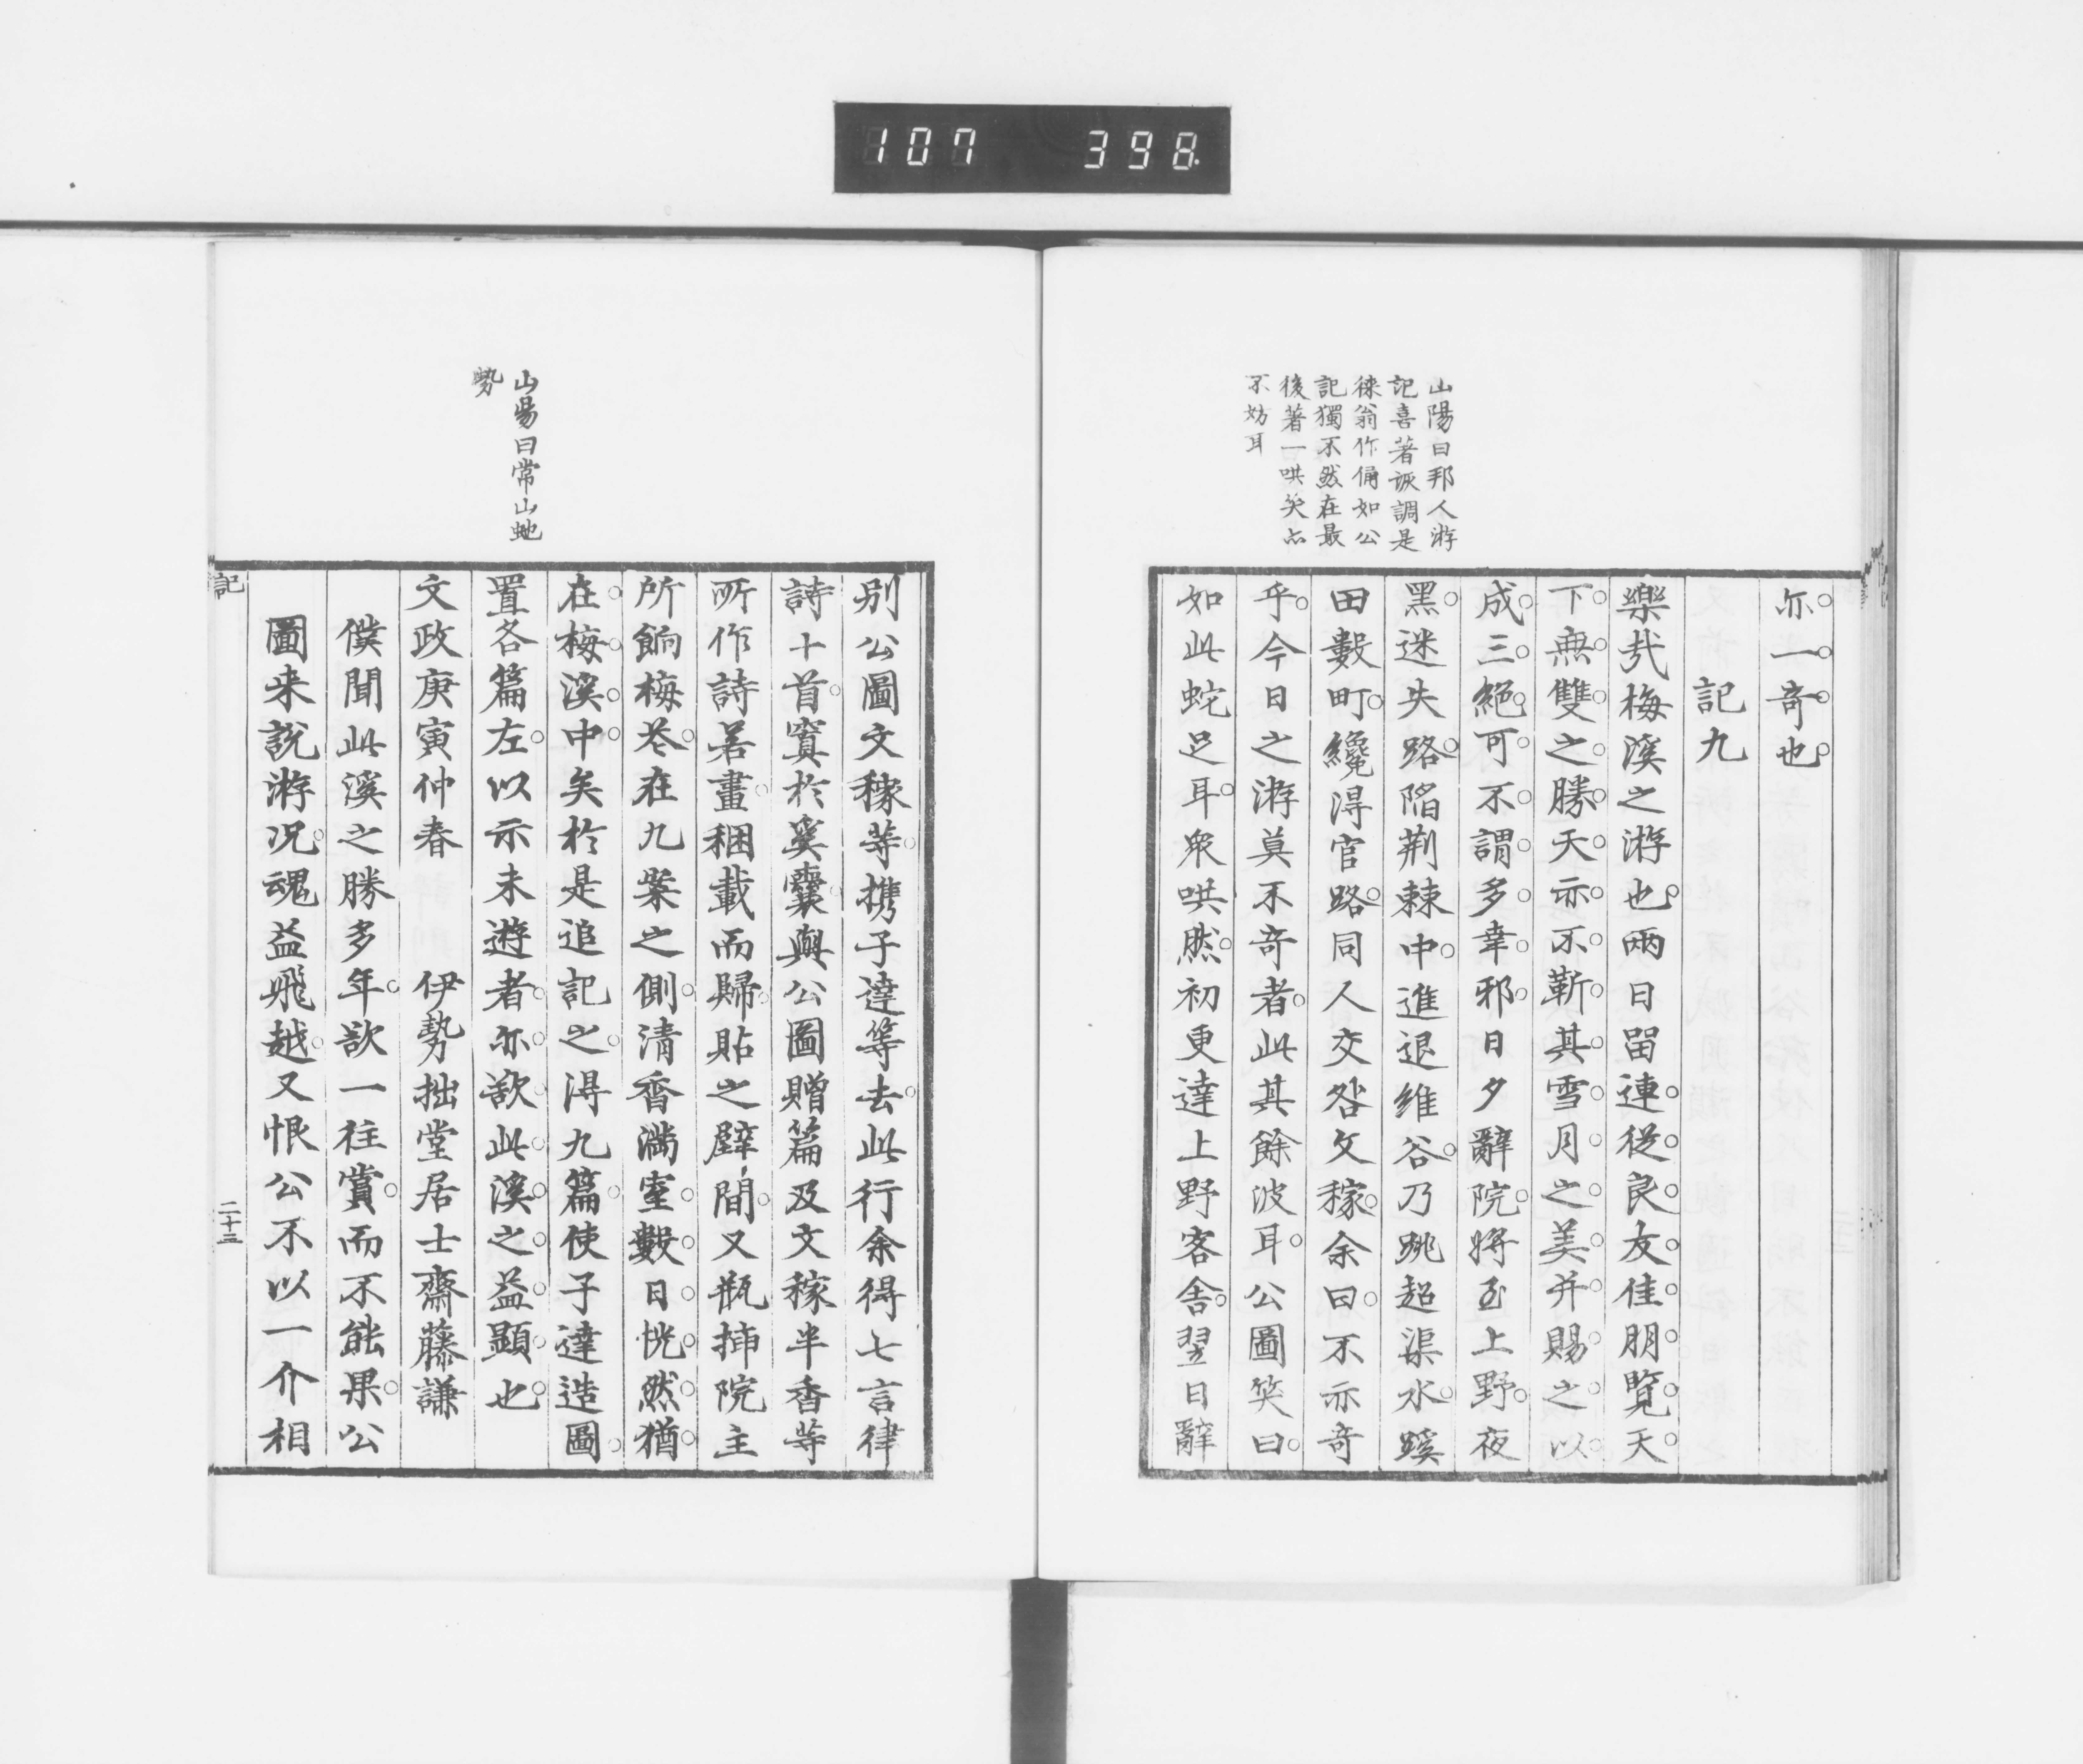 107 398
山陽曰邦人游
記喜著詼調是
徠翁作俑如公
記獨不然在最
後著一哄矣亦
不妨耳
亦一奇也
記九
樂哉梅溪之游也兩日留連從良友佳朋覽天
下無雙之勝天亦不靳其雪月之美并賜之以
成三絕可不謂多幸邪日夕辭院將至上野夜
黑迷失路陷荆棘中進退維谷乃跳超渠水蹊
田數町纔得官路同人交咎文稼余曰不亦奇
乎今日之游莫不奇者此其餘波耳公圖笑曰
如此蛇足耳衆哄然初更達上野客舍翌日辭
山陽曰常山虵
勢
別公圖文稼等携子達等去此行余得七言律
詩十首寘於奚囊與公圖贈篇及文稼半香等
所作詩若畫稛載而歸貼之壁間又瓶揷院主
所餉梅花在九案之側清香滿室數日恍然猶
在梅溪中矣於是追記之得九篇使子達造圖
置各篇左以示未遊者亦欲此溪之益顯也
文政庚寅仲春　伊勢拙堂居士齋藤謙
僕聞此溪之勝多年欲一往賞而不能果公
圖来說游况魂益飛越又恨公不以一介相
記
二十三